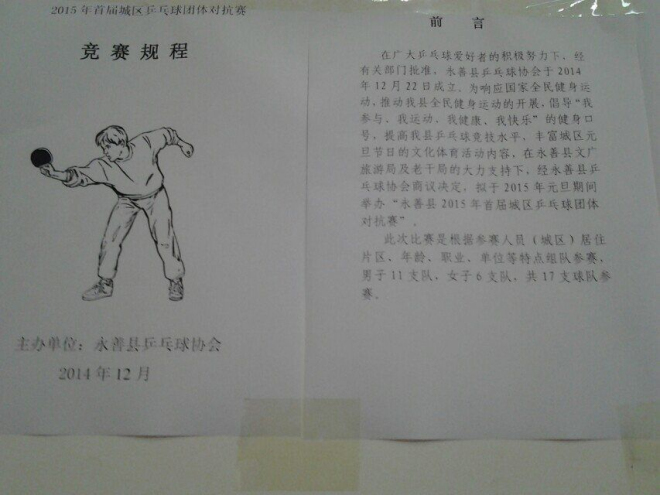 2015年首届城区乒乓球团体对抗赛
竞赛规程
主办单位：永善县乒乓球协会
2014年12月
前 言
在广大乒乓球爱好者的积极努力下，经
有关部门批准，永善县乒乓球协会于2014
年12月22日成立。为响应国家全民健身运
动，推动我县全民健身运动的开展，倡导“我
参与、我运动、我健康、我快乐”的健身口
号，提高我县乒乓球竞技水平，丰富城区元
旦节日的文化体育活动内容，在永善县文广
旅游局及老干局的大力支持下，经永善县乒
乓球协会商议决定，拟于2015年元旦期间
举办“永善县2015年首届城区乒乓球团体
对抗赛”。
此次比赛是根据参赛人员（城区）居住
片区、年龄、职业、单位等特点组队参赛，
男子11支队，女子6支队，共17支球队参
赛。